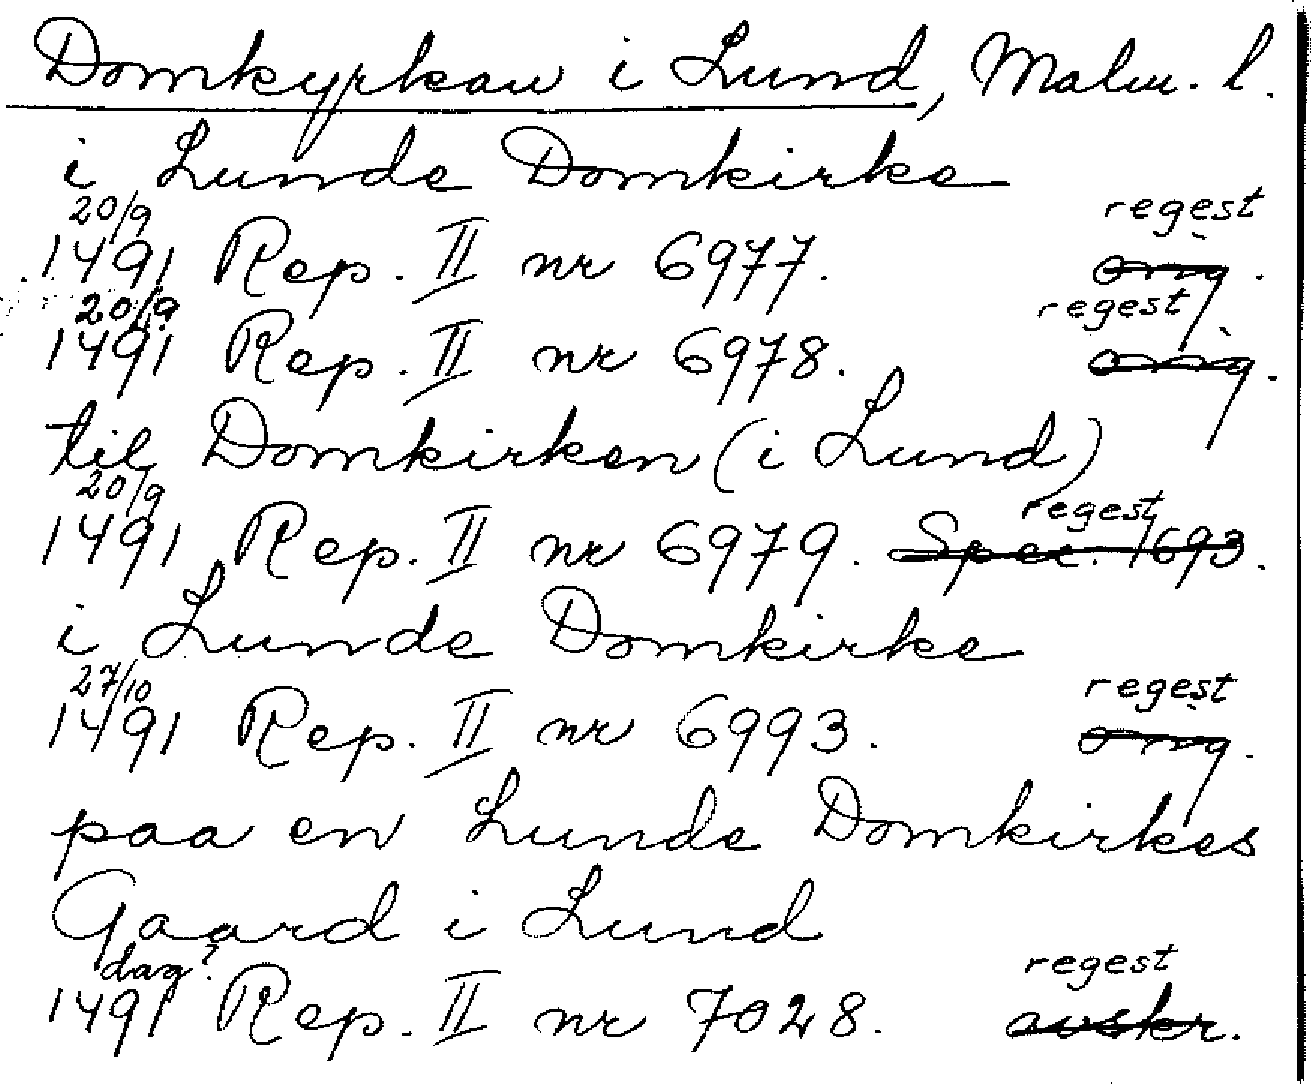 Domkyrkan i Lund, Malm. l.
i Lunde Domkirke
20/9 regest
1491 Rep. II nr 6977. orig.
20/9 regest
1491 Rep. II nr 6978. orig.
til Domkirken (i Lund)
20/9 regest
1491 Rep. II nr 6979. Spec. 1693.
i Lunde Domkirke
27/10 regest
1491 Rep. II nr 6993. orig.
paa en Lunde Domkirkes
Gaard i Lund
dag? regest
1491 Rep. II nr 7028. avskr.